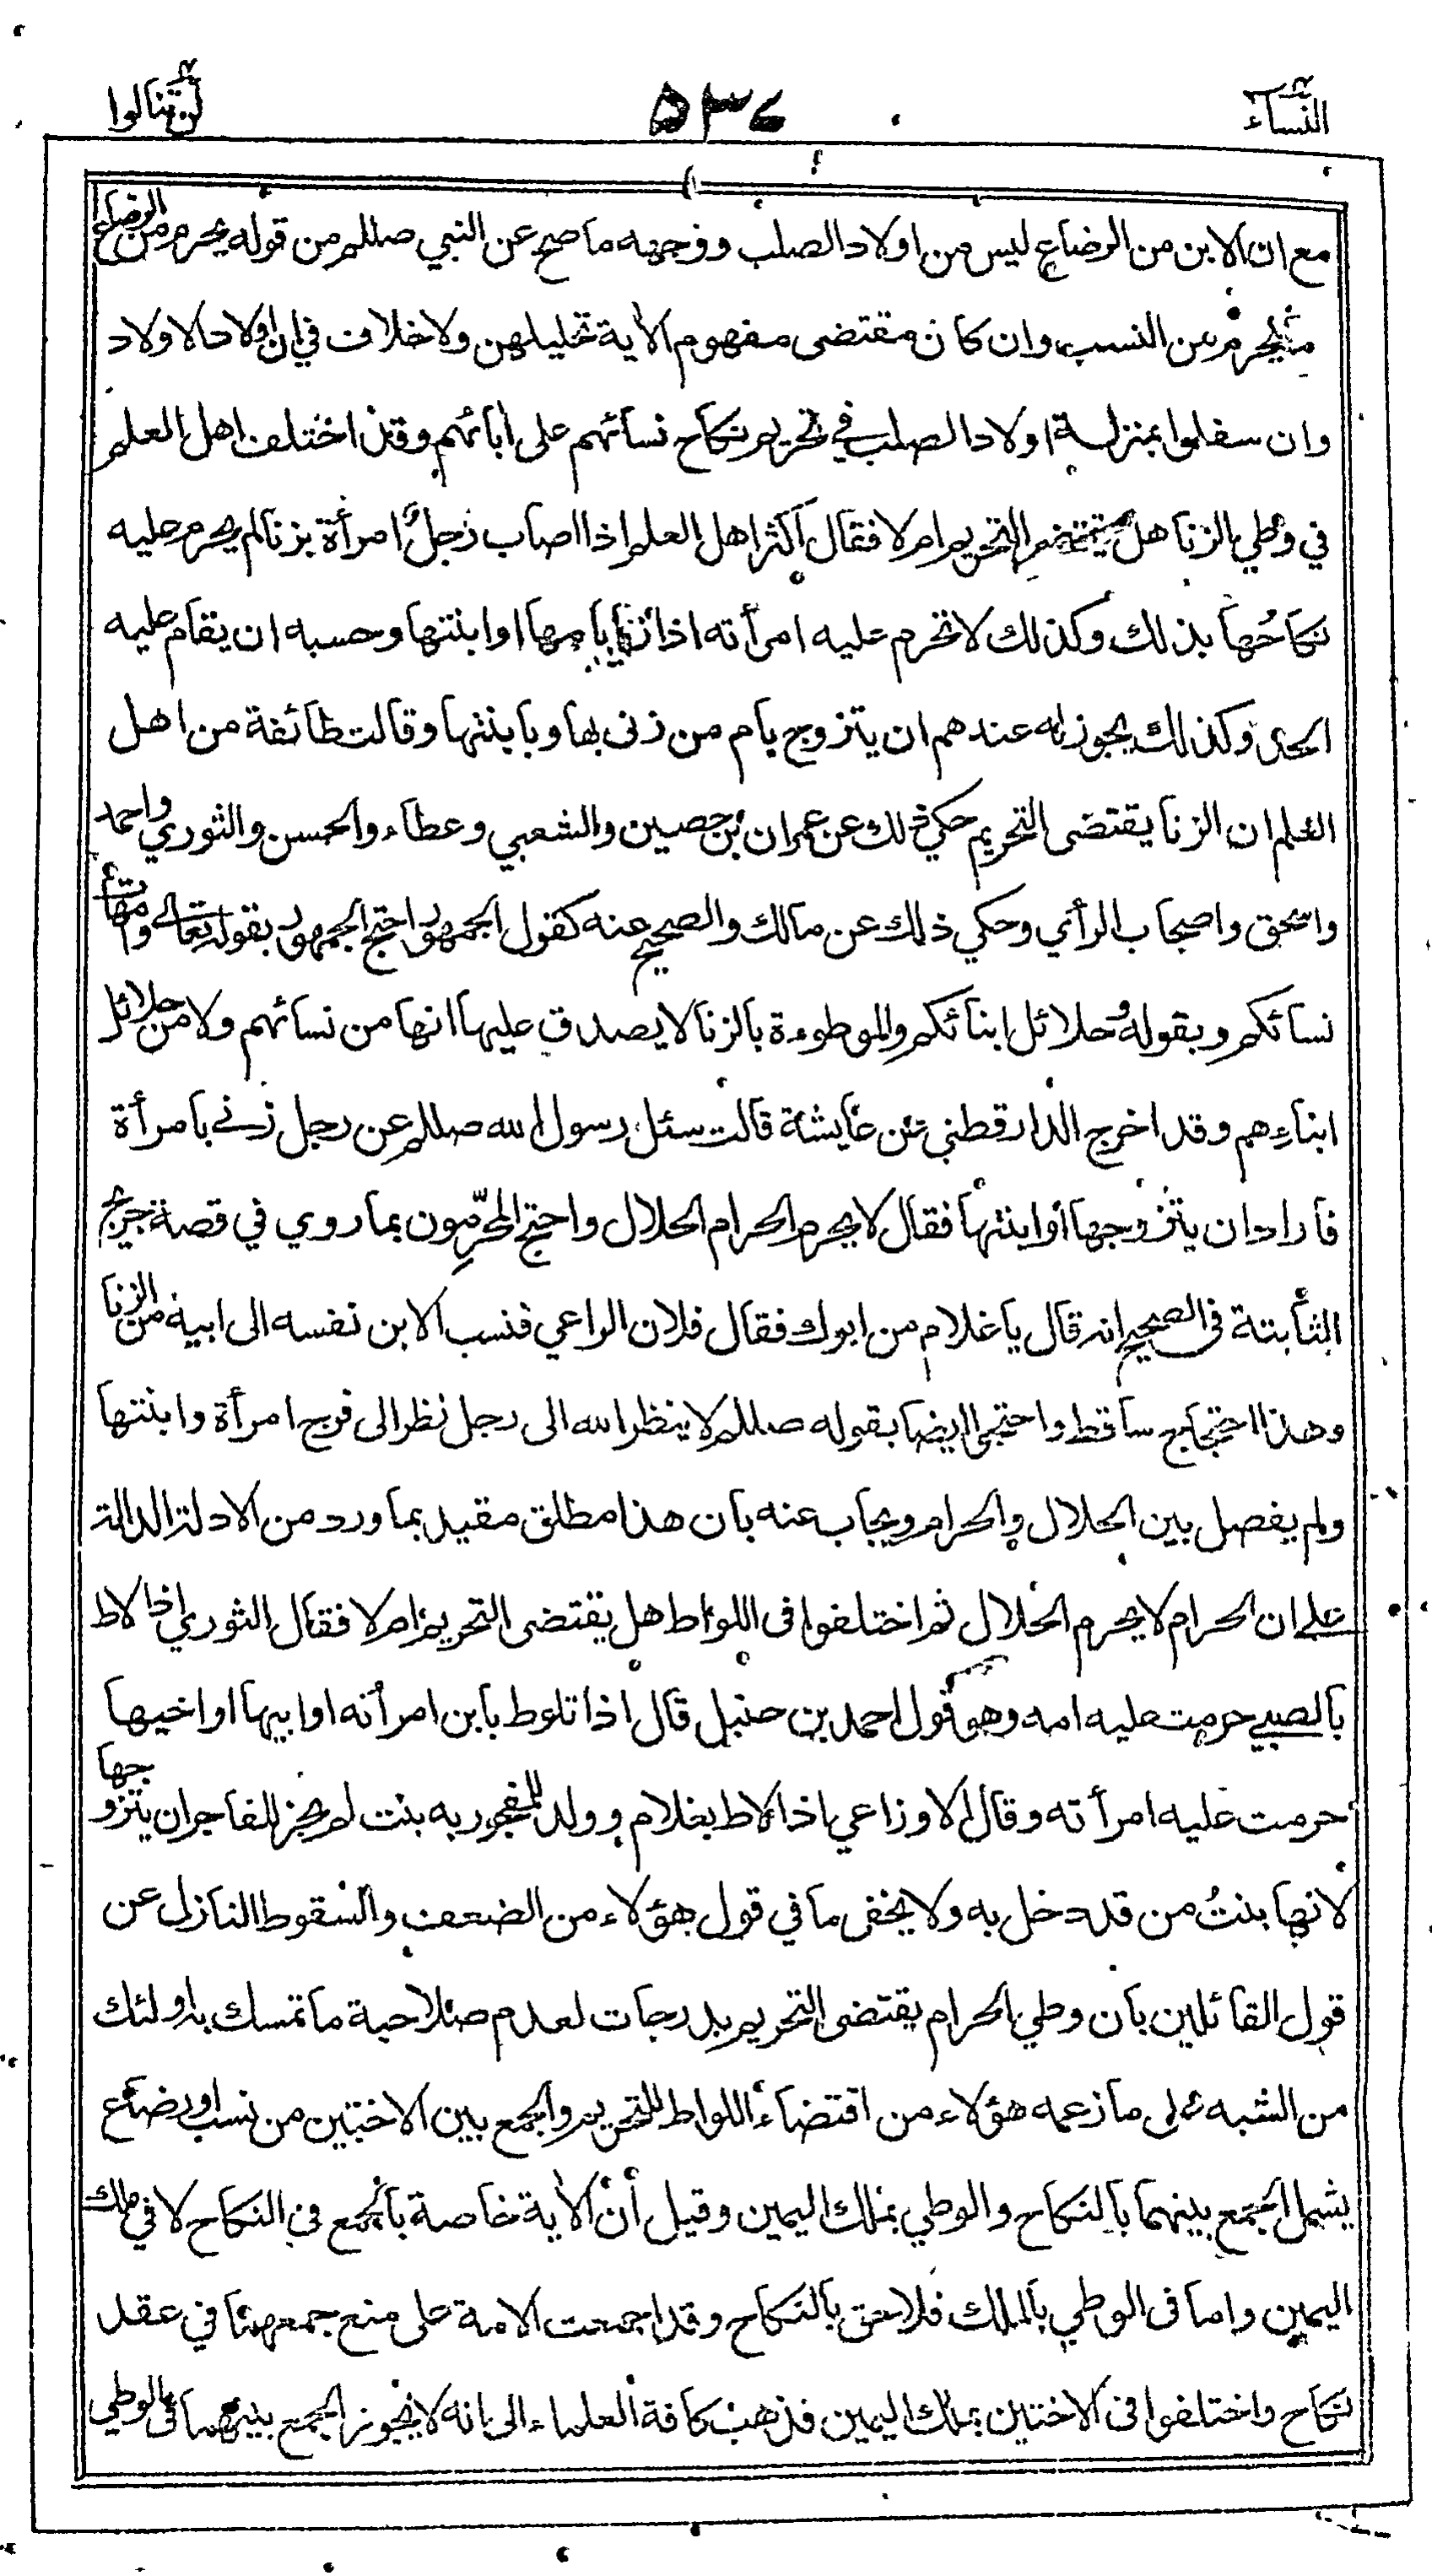 النساء
٥٣٧
لن تنالوا
مع ان الابن من الرضاع ليس من اولاد الصلب ووجهه ما صح عن النبي صللم من قوله يحرم من الرضاع
ما يحرم من النسب وان كان مقتضى مفهوم الآية تحليلهن ولا خلاف في ان اولاد الاولاد
وان سفلوا بمنزلة اولاد الصلب في تحريم نكاح نسائهم على آبائهم وقد اختلف اهل العلم
في وطي الزنا هل يقتضي التحريم ام لا فقال أكثر اهل العلم اذا اصاب رجل امرأة بزنا لم يحرم عليه
نكاحُها بذلك وكذلك لا تحرم عليه امرأته اذا زنا بامها او ابنتها وحسبه ان يقام عليه
الحد وكذلك يجوز له عندهم ان يتزوج بام من زنى بها وبابنتها وقالت طائفة من اهل
العلم ان الزنا يقتضى التحريم حكي ذلك عن عمران بن حصين والشعبي وعطاء والحسن والثوري واحمد
واسحق واصحاب الرأي وحكي ذلك عن مالك والصحيح عنه كقول الجمهور احتج الجمهور بقوله تعالى وامهات
نسائكم وبقوله وحلائل ابنائكم والموطوءة بالزنا لا يصدق عليها انها من نسائهم ولا من حلائل
ابناءهم وقد اخرج الدارقطني عن عايشة قالت سئل رسول الله صللم عن رجل زنى بامرأة
فاراد ان يتزوجها أو ابنتها فقال لا يحرم الحرام الحلال واحتج المحرّمون بما روي في قصة جريج
الثابتة فى الصحيح انه قال يا غلام من ابوك فقال فلان الراعي فنسب الابن نفسه الى ابيه من الزنا
وهذا احتجاج ساقط واحتجوا ايضا بقوله صللم لا ينظر الله الى رجل نظر الى فرج امرأة وابنتها
ولم يفصل بين الحلال والحرام ويجاب عنه بان هذا مطلق مقيد بما ورد من الادلة الدالة
على ان الحرام لا يحرم الحلال ثم اختلفوا فى اللواط هل يقتضى التحريم ام لا فقال الثوري اذا لاط
بالصبي حرمت عليه امه وهو قول احمد بن حنبل قال اذا تلوط بابن امرأته او ابيها او اخيها
حرمت عليه امرأته وقال الاوزاعي اذا لاط بغلام وولد للمفجور به بنت لم يجز للفاجر ان يتزوجها
لانها بنتُ من قد دخل به ولا يخفى ما في قول هؤلاء من الضعف والسقوط النازل عن
قول القائلين بان وطي الحرام يقتضى التحريم بدرجات لعدم صلاحية ما تمسك به اولئك
من الشبه على ما زعمه هؤلاء من اقتضاء اللواط للتحريم والجمع بين الاختين من نسب او رضاع
يشمل الجمع بينهما بالنكاح والوطي بملك اليمين وقيل أن الآية خاصة بالجمع في النكاح لا في ملك
اليمين واما فى الوطي بالملك فلاحق بالنكاح وقد اجمعت الامة على منع جمعهما في عقد
نكاح واختلفوا فى الاختين بملك اليمين فذهب كافة العلماء الى انه لا يجوز الجمع بينهما فى الوطي